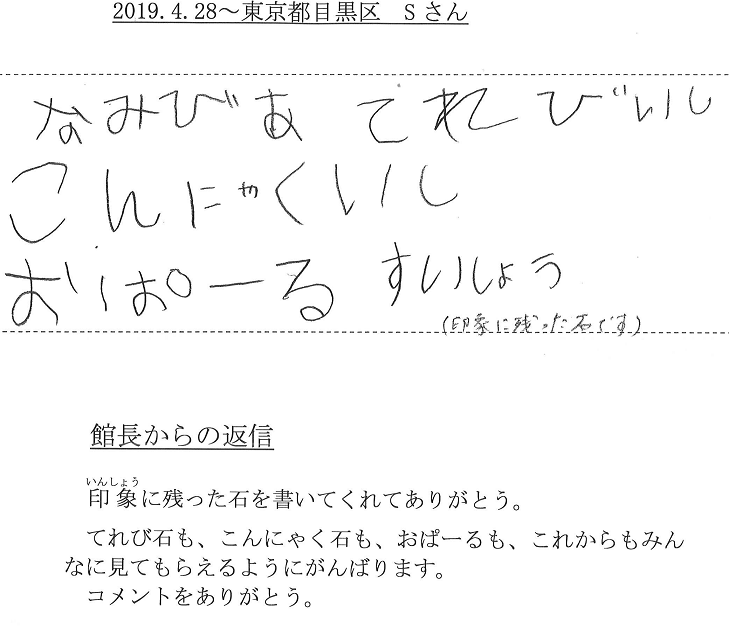 2019.4.28～東京都目黒区　Sさん
なみびあ てれびいし
こんにゃくいし
おぱーる すいしょう
(印象に残った石です)
館長からの返信
いんしょう
印象に残った石を書いてくれてありがとう。
てれび石も、こんにゃく石も、おぱーるも、これからもみん
なに見てもらえるようにがんばります。
コメントをありがとう。